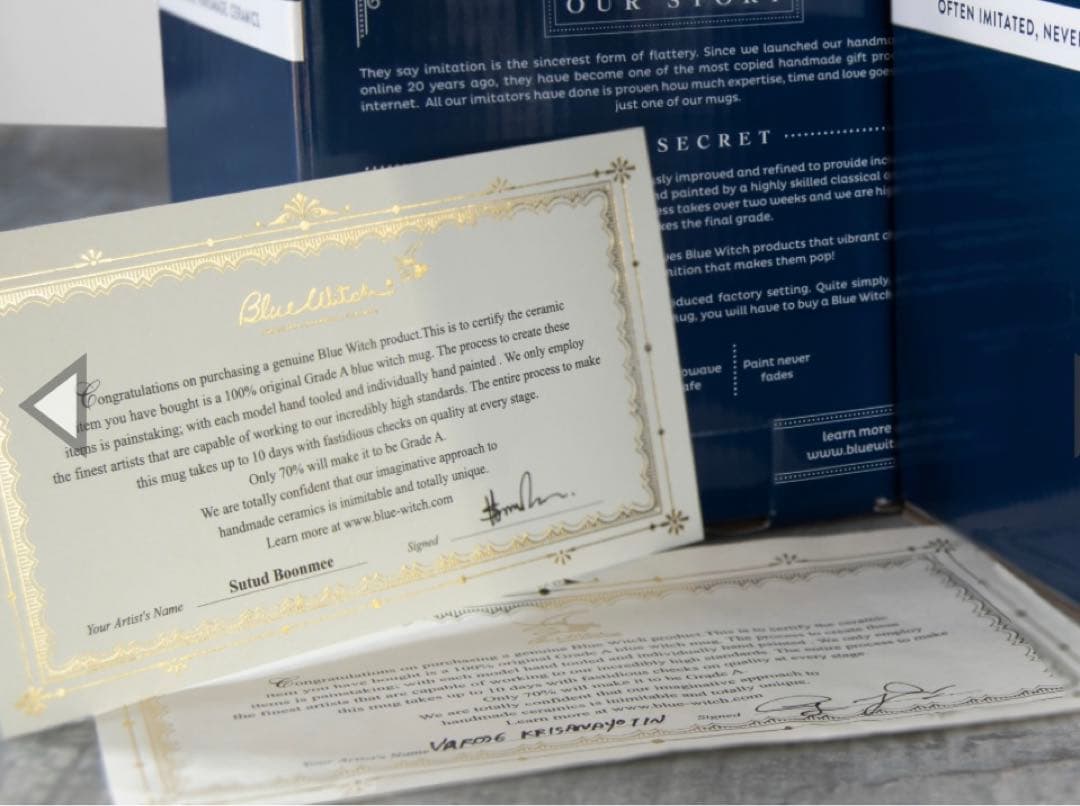 OUR STORY
They say imitation is the sincerest form of flattery. Since we launched our
online 20 years ago, they have become one of the most copied handmade gift
internet. All our imitators have done is proven how much expertise, time and love
just one of our mugs.
SECRET
improved and refined to provide
painted by a highly skilled classical
takes over two weeks and we are
the final grade.
Blue Witch products that vibrant
that makes them pop!
factory setting. Quite simply
you will have to buy a Blue Witch
Paint never
fades
learn more
OFTEN IMITATED,
Blue Witch
Congratulations on purchasing a genuine Blue Witch product.This is to certify the ceramic
item you have bought is a 100% original Grade A blue witch mug. The process to create these
items is painstaking; with each model hand tooled and individually hand painted . We only employ
the finest artists that are capable of working to our incredibly high standards. The entire process to make
this mug takes up to 10 days with fastidious checks on quality at every stage.
Only 70% will make it to be Grade A.
We are totally confident that our imaginative approach to
handmade ceramics is inimitable and totally unique.
Learn more at www.blue-witch.com
Signed
Sutud Boonmee
Your Artist's Name
Congratulations on purchasing a genuine Blue Witch product.This is to certify the ceramic
item you have bought is a 100% original Grade A blue witch mug. The process to create these
items is painstaking; with each model hand tooled and individually hand painted . We only employ
the finest artists that are capable of working to our incredibly high standards. The entire process to make
this mug takes up to 10 days with fastidious checks on quality at every stage
Only 70% will make it to be Grade A
We are totally confident that our imaginative approach to
handmade ceramics is inimitable and totally unique.
Learn more at www.blue-witch.com
Signed
Your Artist's Name